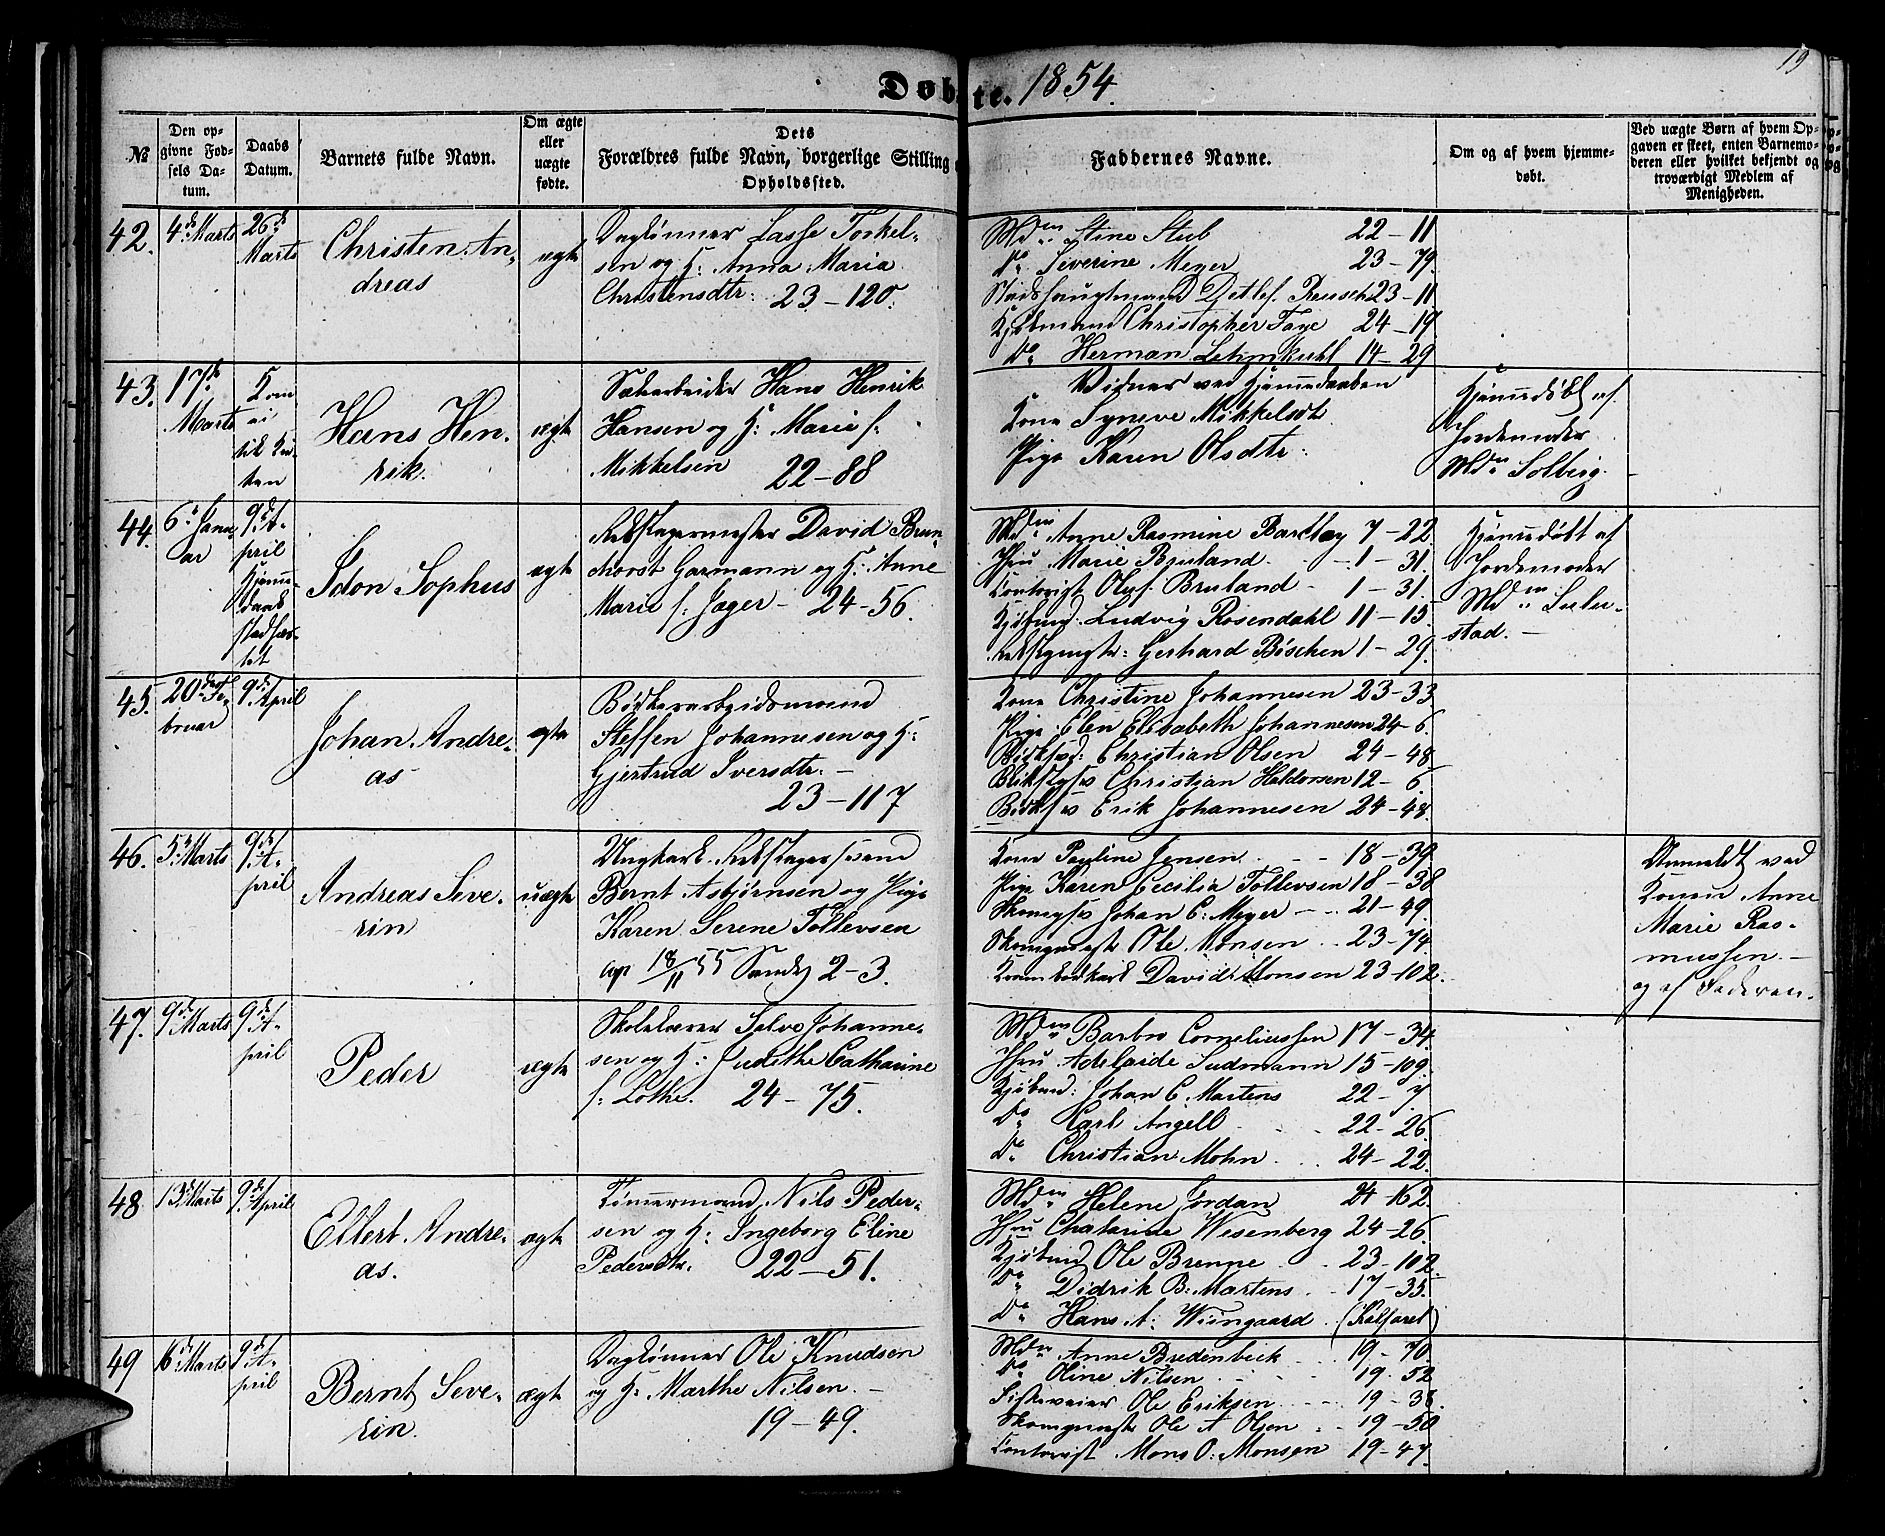 19
Døbte. 1854.
№
Den op-
givne Fød-
sels Da-
tum.
Daabs
Datum.
Barnets fulde Navn.
Om ægte
eller
uægte
fødte.
Dets
Forældres fulde Navn, borgerlige Stilling
Opholdssted.
Faddernes Navne.
Om og af hvem hjemme-
døbt.
Ved uægte Børn af hvem Op-
gaven er skeet, enten Barnemo-
deren eller hvilket bekjendt og
troværdigt Medlem af
Menigheden.
42.
4de Marts
26de
Marts
Christen An-
dreas
ægte
Daglønner Lasse Torkel-
sen og H: Anna Maria
Christensdtr: 23-120.
Mdm Stine Stub 22-11
Do Severine Meyer 23-79.
Stadshauptmand Detlef Rausch 23-11
Kjøbmand Christopher Faye 24-19
Do Herman Lehmkuhl 14-29
43.
17de
Marts
Kom
ei
til Kir-
ken
Hans Hen-
rik.
ægte
Hans Henrik
Hansen og H: Marie f:
Mikkelsen 22-88
Vidner ved Hjemmedaaben
Kone Syneve Mikkelsdt
Pige Karen Olsdtr:
Hjemmedøbt af
Jordemoder
Mdm Solberg.
44.
6te Janu-
ar
9de A-
pril
Hjemme-
daab
stadfæs-
tet
Idon Sophus
ægte
Rebslagermester David Brun-
horst Garmann og H: Anne
Marie f: Jæger - 24-56.
Mdm Anne Rasmine Barclay 7-22.
Jfru Marie Bruland - 1-31.
Contorist Oluf Bruland - 1-31.
Kjøbmd: Ludvig Rosendahl 11-15.
Rebslgmstr: Gerhard Bøschen 1-29.
Hjemmedøbt af
Jordemoder
Mdm Sulu-
stad. -
45.
20de Fe-
bruar
9de April
Johan Andre-
as
ægte
Bødkerarbeidsmand
Steffen Johannesen og H:
Gjertrud Iversdtr. -
23-117
Kone Christine Johannesen 23-33
Pige Elen Elisabeth Johannesen 24-6.
Christian Olsen 24-48
Christian Haldorsen 12-6.
Erik Johannesen 24-48.
46.
5te Marts
9de A-
pril
Andreas Seve-
rin
uægte
Ungkarl Rebslagersvend
Bernt Asbjørnsen og Pige
Karen Serene Tollevsen
18/11 55 2-3.
Kone Pauline Jensen - - 18-39.
Pige Karen Cecilia Tollevsen 18-38
Johan C: Meyer - 21-49.
Ole Monsen - 23-74.
David Monsen 23-102.
Anmeldt ved
Konen Anne
Marie Ras-
mussen. -
og af Faderen.
47.
9de Marts
9de A-
pril
Peder
ægte
Skolelærer Salve Johanne-
sen og H: Judithe Catharine
f: Lothe. 24-75.
Mdm Barbro Corneliussen 17-34.
Jfru Adelaide Sudmann 15-109.
Kjøbmd: Johan C. Martens 22-7
Do Karl Angell 22-26.
Do Christian Mohn 24-22.
48.
13de Marts
9de April
Ellert Andre-
as.
ægte
Tømmermand Nils Peder-
sen og H: Ingeborg Eline
Pedersdtr. 22-51.
Mdm Helene Jordan 24-162.
Jfru Chatarine Wesenberg 24-26.
Kjøbmd Ole Brenne 23-102.
Do Didrik B: Martens - 17-35.
Do Hans A: Wiingaard. (Kalfaret)
49
16de Marts
9de A-
pril
Bernt Seve-
rin.
ægte
Daglønner Ole Knudsen
og H: Marthe Nilsen. -
19-49.
Mdm Anne Bredenbeck - 19-70.
Do Oline Nilsen - 19-52
Ole Eriksen - 19-38.
Ole A Olsen - 19-50
Contorist Mons O: Monsen 19-47.